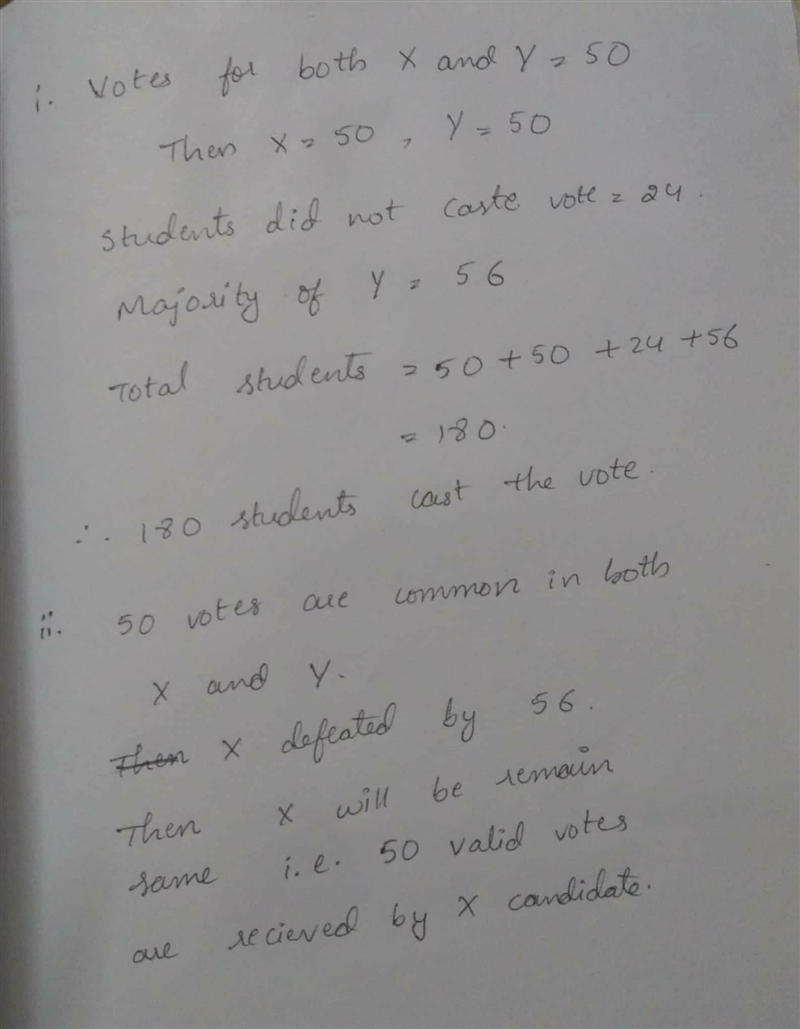 i. Votes for both X and Y = 50
Then X = 50, Y = 50
Students did not caste vote = 24.
Majority of Y = 56
Total students = 50 + 50 + 24 + 56
= 180.
∴ 180 students cast the vote.
ii. 50 votes are common in both
X and Y.
Then X defeated by 56.
Then X will be remain
same i.e. 50 valid votes
are recieved by X candidate.